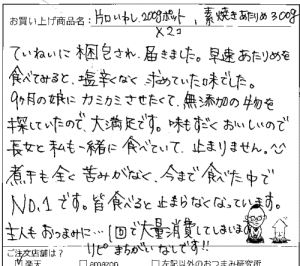 お買い上げ商品名: 片口いわし200gポット×2コ、素焼きあたりめ300g
ていねいに梱包され、届きました。早速あたりめを
食べてみると、塩辛くなく求めていた味でした。
9ヶ月の娘にカミカミさせたくて、無添加の物を
探していたので、大満足です。味もすごくおいしいので
長女と私も一緒に食べていて、止まりません。
煮干も全く苦みがなく、今まで食べた中で
NO.1です。皆食べると止まらなくなっています。
主人もおつまみに…1回で大量消費してしまいます
リピまちがいなしです!!
ご注文店舗は?
楽天 □amazon □左記以外のおつまみ研究所